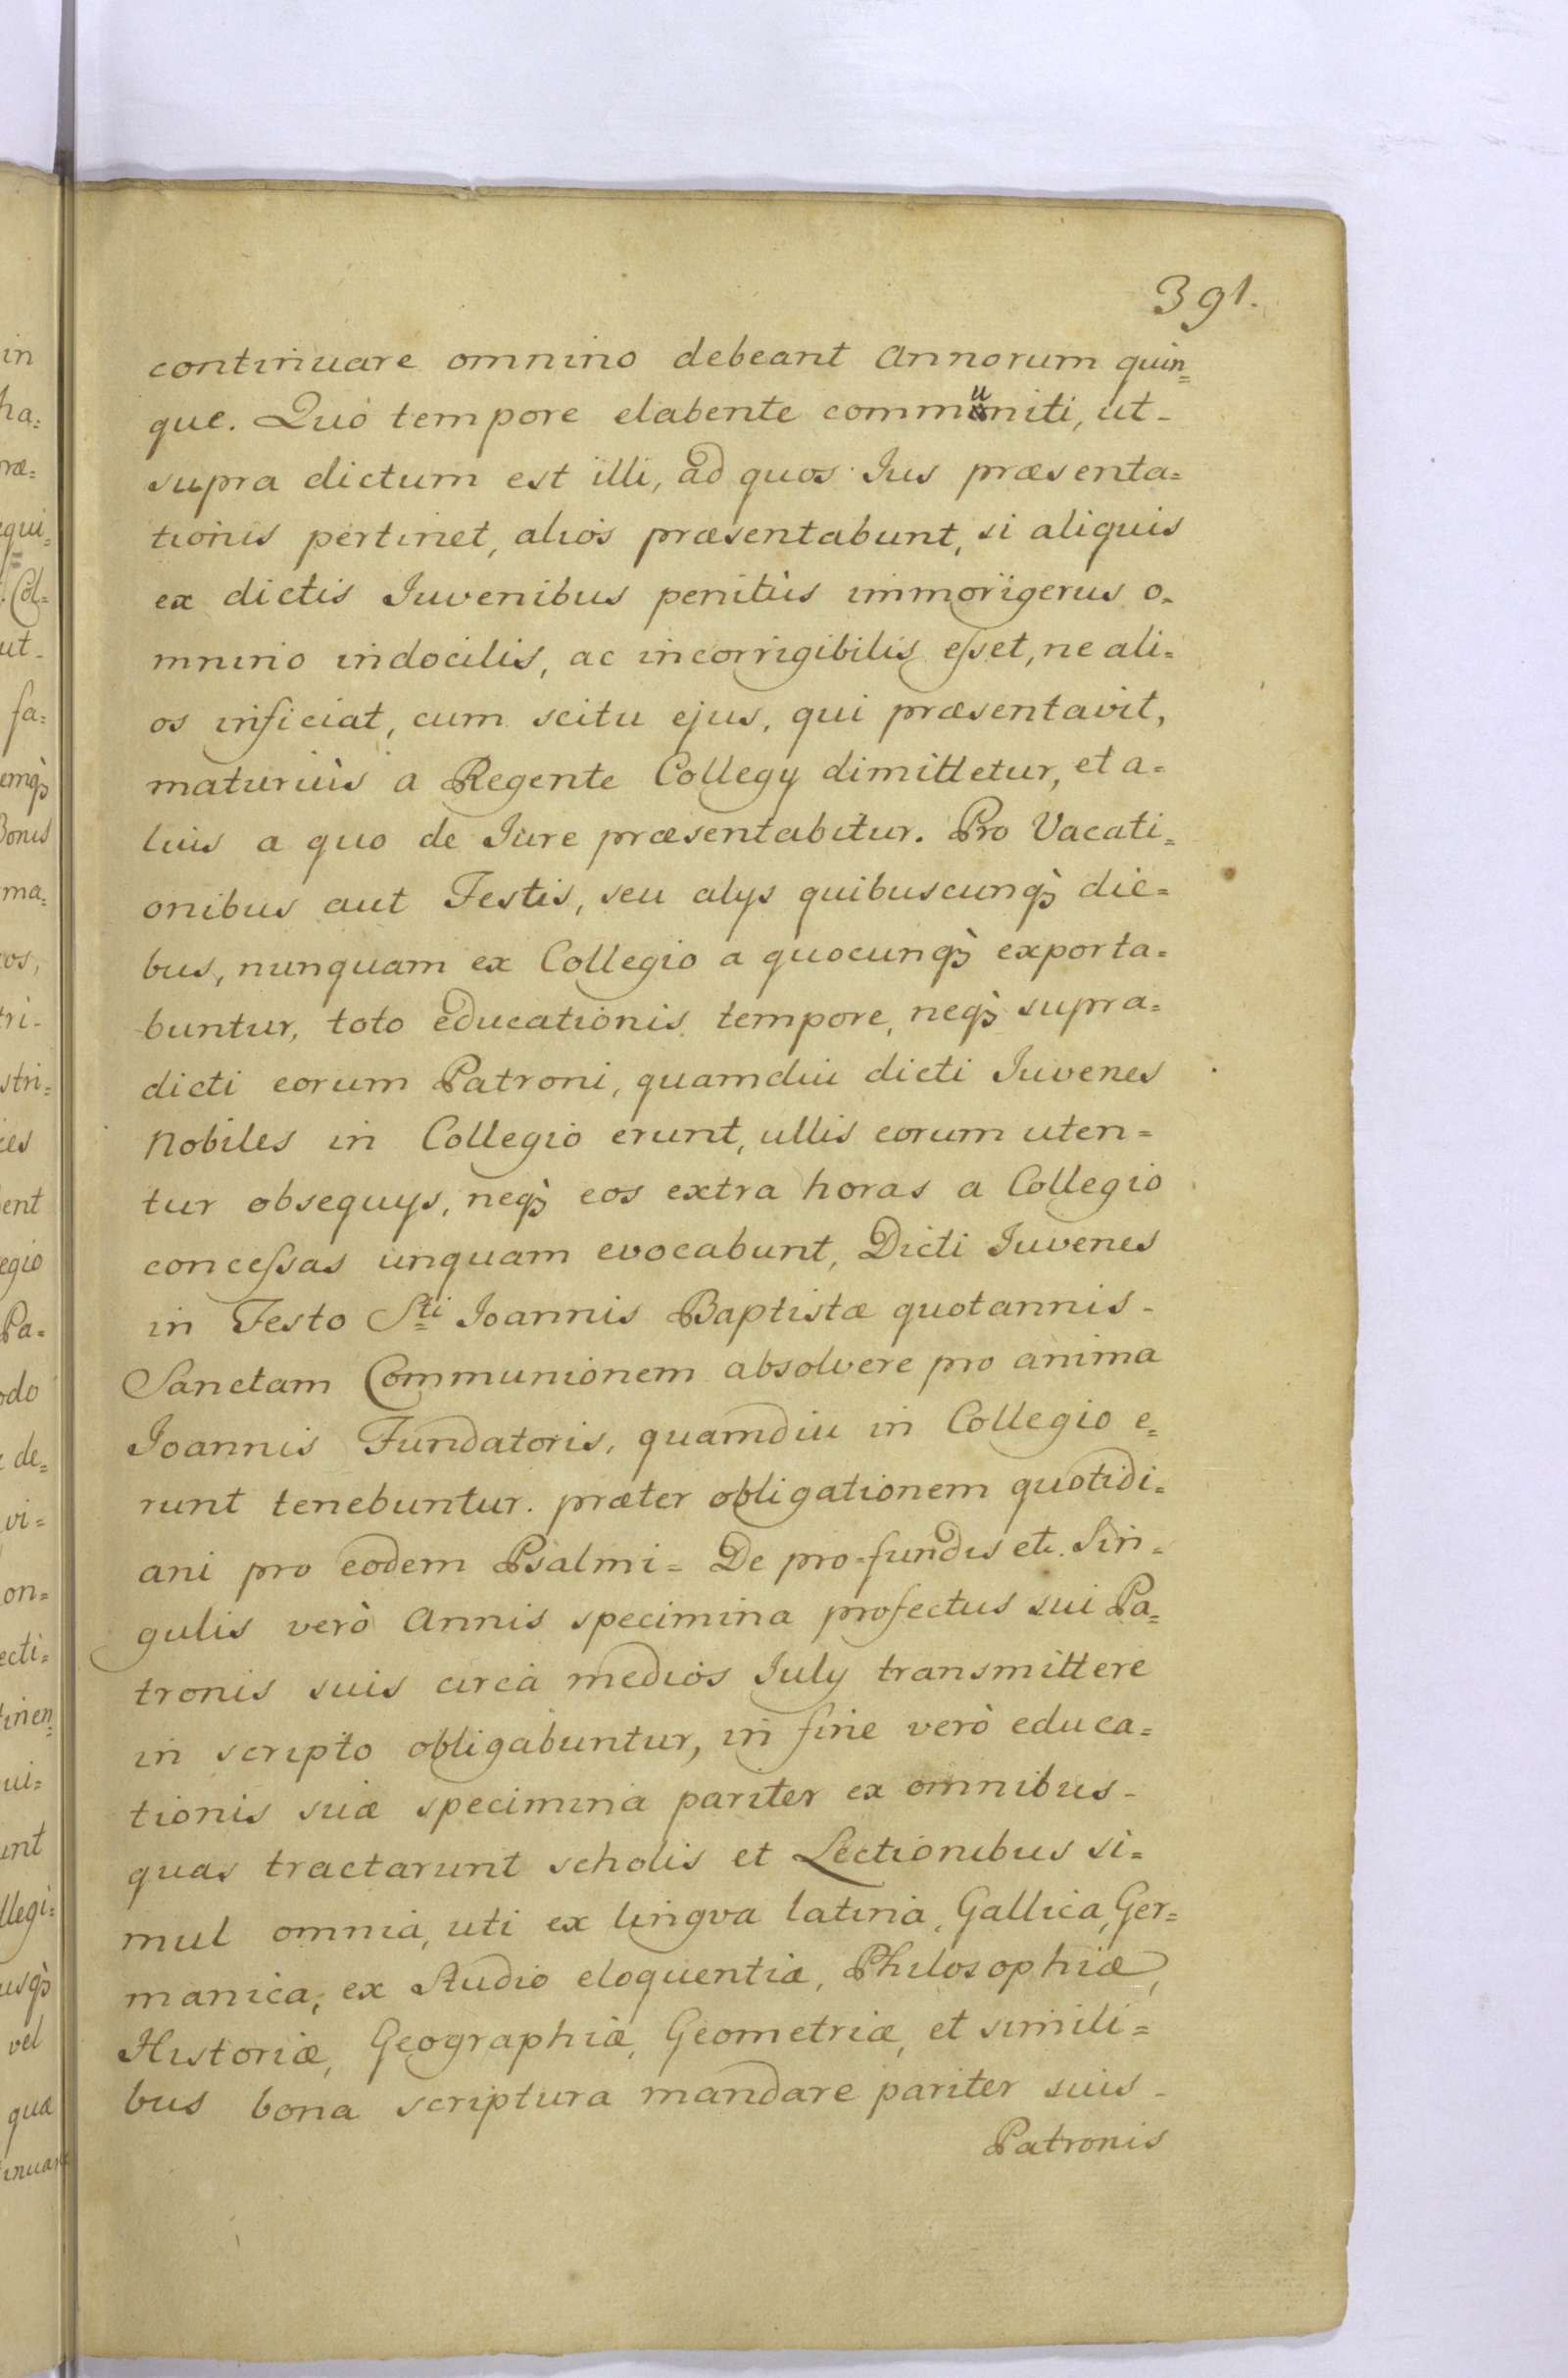 391.
continuare omnino debeant Annorum quin=
que. Quò tempore elabente communiti, ut-
supra dictum est illi, ad quos Jus præsenta=
tionis pertinet, alios præsentabunt, si aliquis
ex dictis Juvenibus penitùs immorigerus o=
mnino indocilis, ac incorrigibilis esset, ne ali=
os inficiat, cum scitu ejus, qui præsentavit,
maturiùs a Regente Collegy dimittetur, et a=
lius a quo de Jure præsentabitur. Pro Vacati=
onibus aut Festis, seu alys quibuscunq̀ꝫ die=
bus, nunquam ex Collegio a quocunq̀ꝫ exporta=
buntur, toto educationis tempore, neq̀ꝫ supra=
dicti eorum Patroni, quamdiu dicti Juvenes
Nobiles in Collegio erunt, ullis eorum uten=
tur obsequys, neq̀ꝫ eos extra horas a Collegio
concessas unquam evocabunt, Dicti Juvenes
in Festo Sti Joannis Baptistæ quotannis-
Sanctam Communionem absolvere pro anima
Joannis Fundatoris, quamdiu in Collegio e=
runt tenebuntur. præter obligationem quotidi=
ani pro eodem Psalmi= De pro=fundis etc. Sin=
gulis verò Annis specimina profectus sui Pa=
tronis suis circa medios July transmittere
in scripto obligabuntur, in fine verò educa=
tionis suæ specimina pariter ex omnibus-
quas tractarunt scholis et Lectionibus si=
mul omnia, uti ex lingva latina, Gallica, Ger=
manica, ex Studio eloquentiæ, Philosophiæ,
Historiæ, Geographiæ, Geometriæ, et simili=
bus bona scriptura mandare pariter suis-
Patronis
in
ha=
ræ=
equi=
Col=
ut-
fa=
emq̀ꝫ
Bonis
ma=
os,
tri-
stri=
ies
ent
egio
Pa=
odo
de=
vi=
on=
ecti=
tinen=
ui=
unt
llegi=
usq̀ꝫ
vel
quæ
inuare